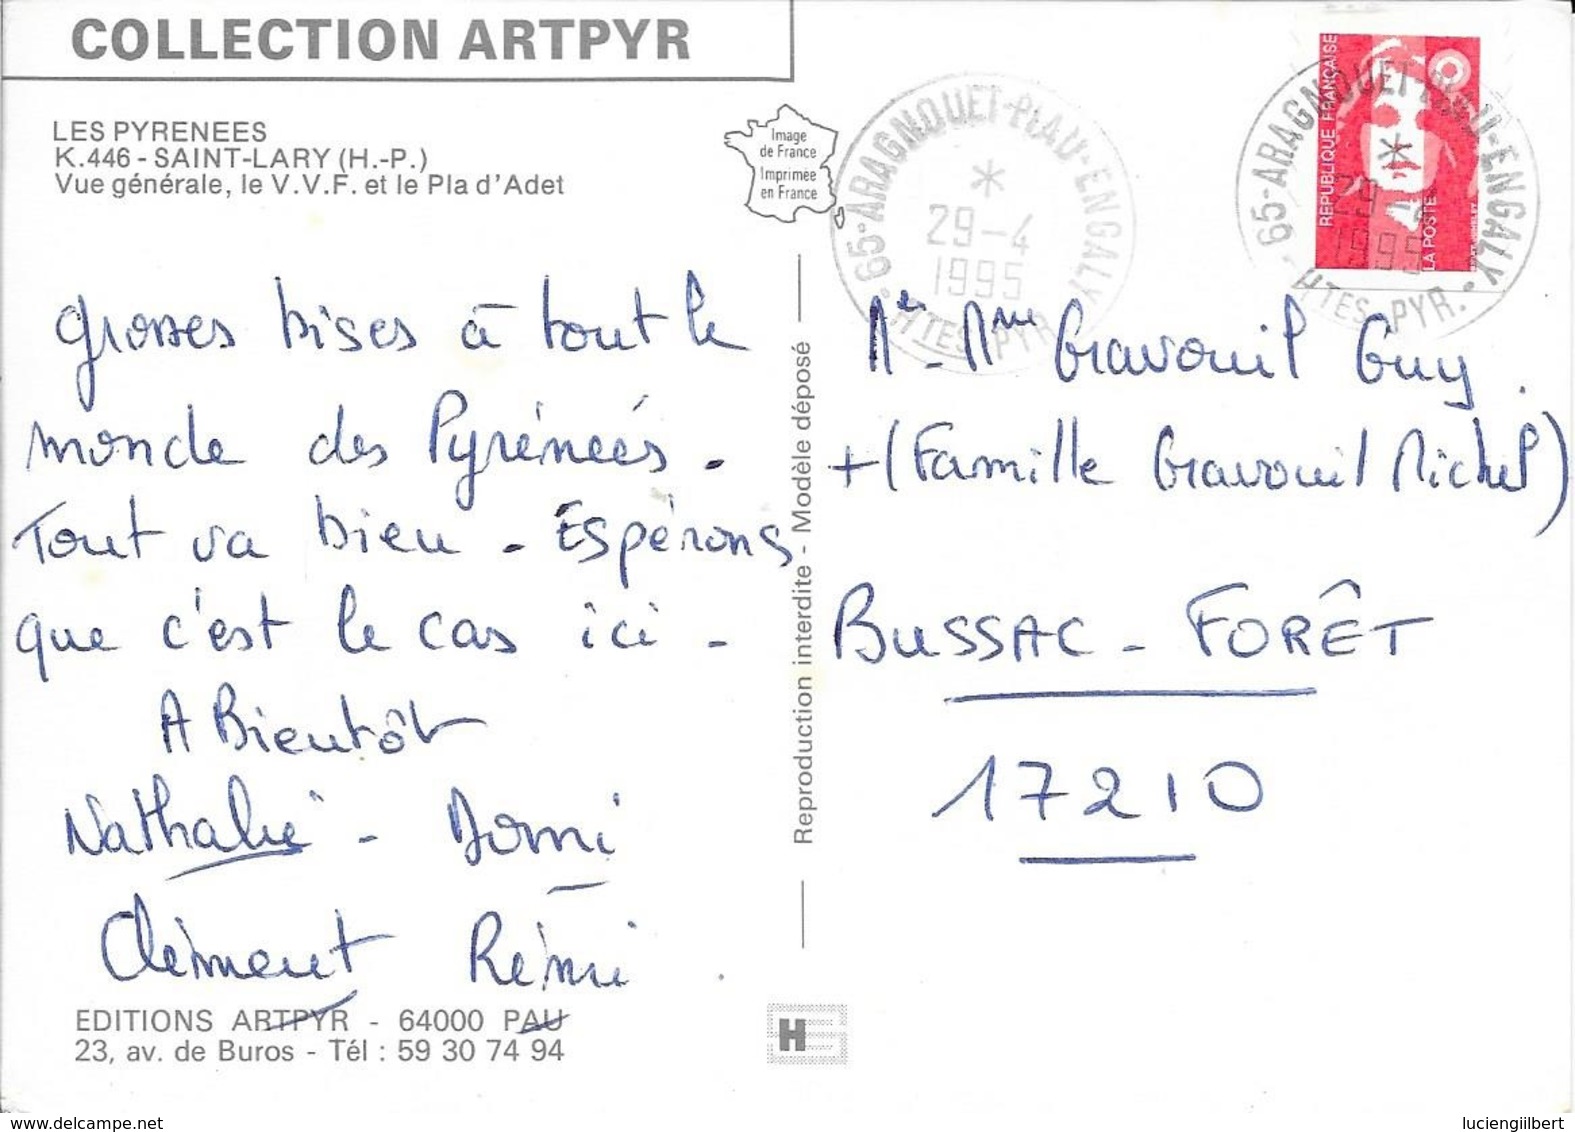 COLLECTION ARTPYR
LES PYRENEES
K.446 - SAINT-LARY (H.-P.)
Vue générale, le V.V.F. et le Pla d'Adet
Image
de France
Imprimée
en France
65-ARAGNOUET-PIAU-ENGALY
*
29-4
1995
HTES PYR.
REPUBLIQUE FRANÇAISE
LA POSTE
65-ARAGNOUET-PIAU-ENGALY
*
29-4
1995
HTES-PYR.
Grosses bises à tout le
monde des Pyrénées.
Tout va bien - Espérons
que c'est le cas ici -
A Bientôt
Nathalie - Domi
Clément Rémi
EDITIONS ARTPYR - 64000 PAU
23, av. de Buros - Tél : 59 30 74 94
Reproduction interdite - Modèle déposé
Mr - Mme Gravouil Guy
+ (Famille Gravouil Michel)
BUSSAC - FORÊT
17210
H
luciengilbert